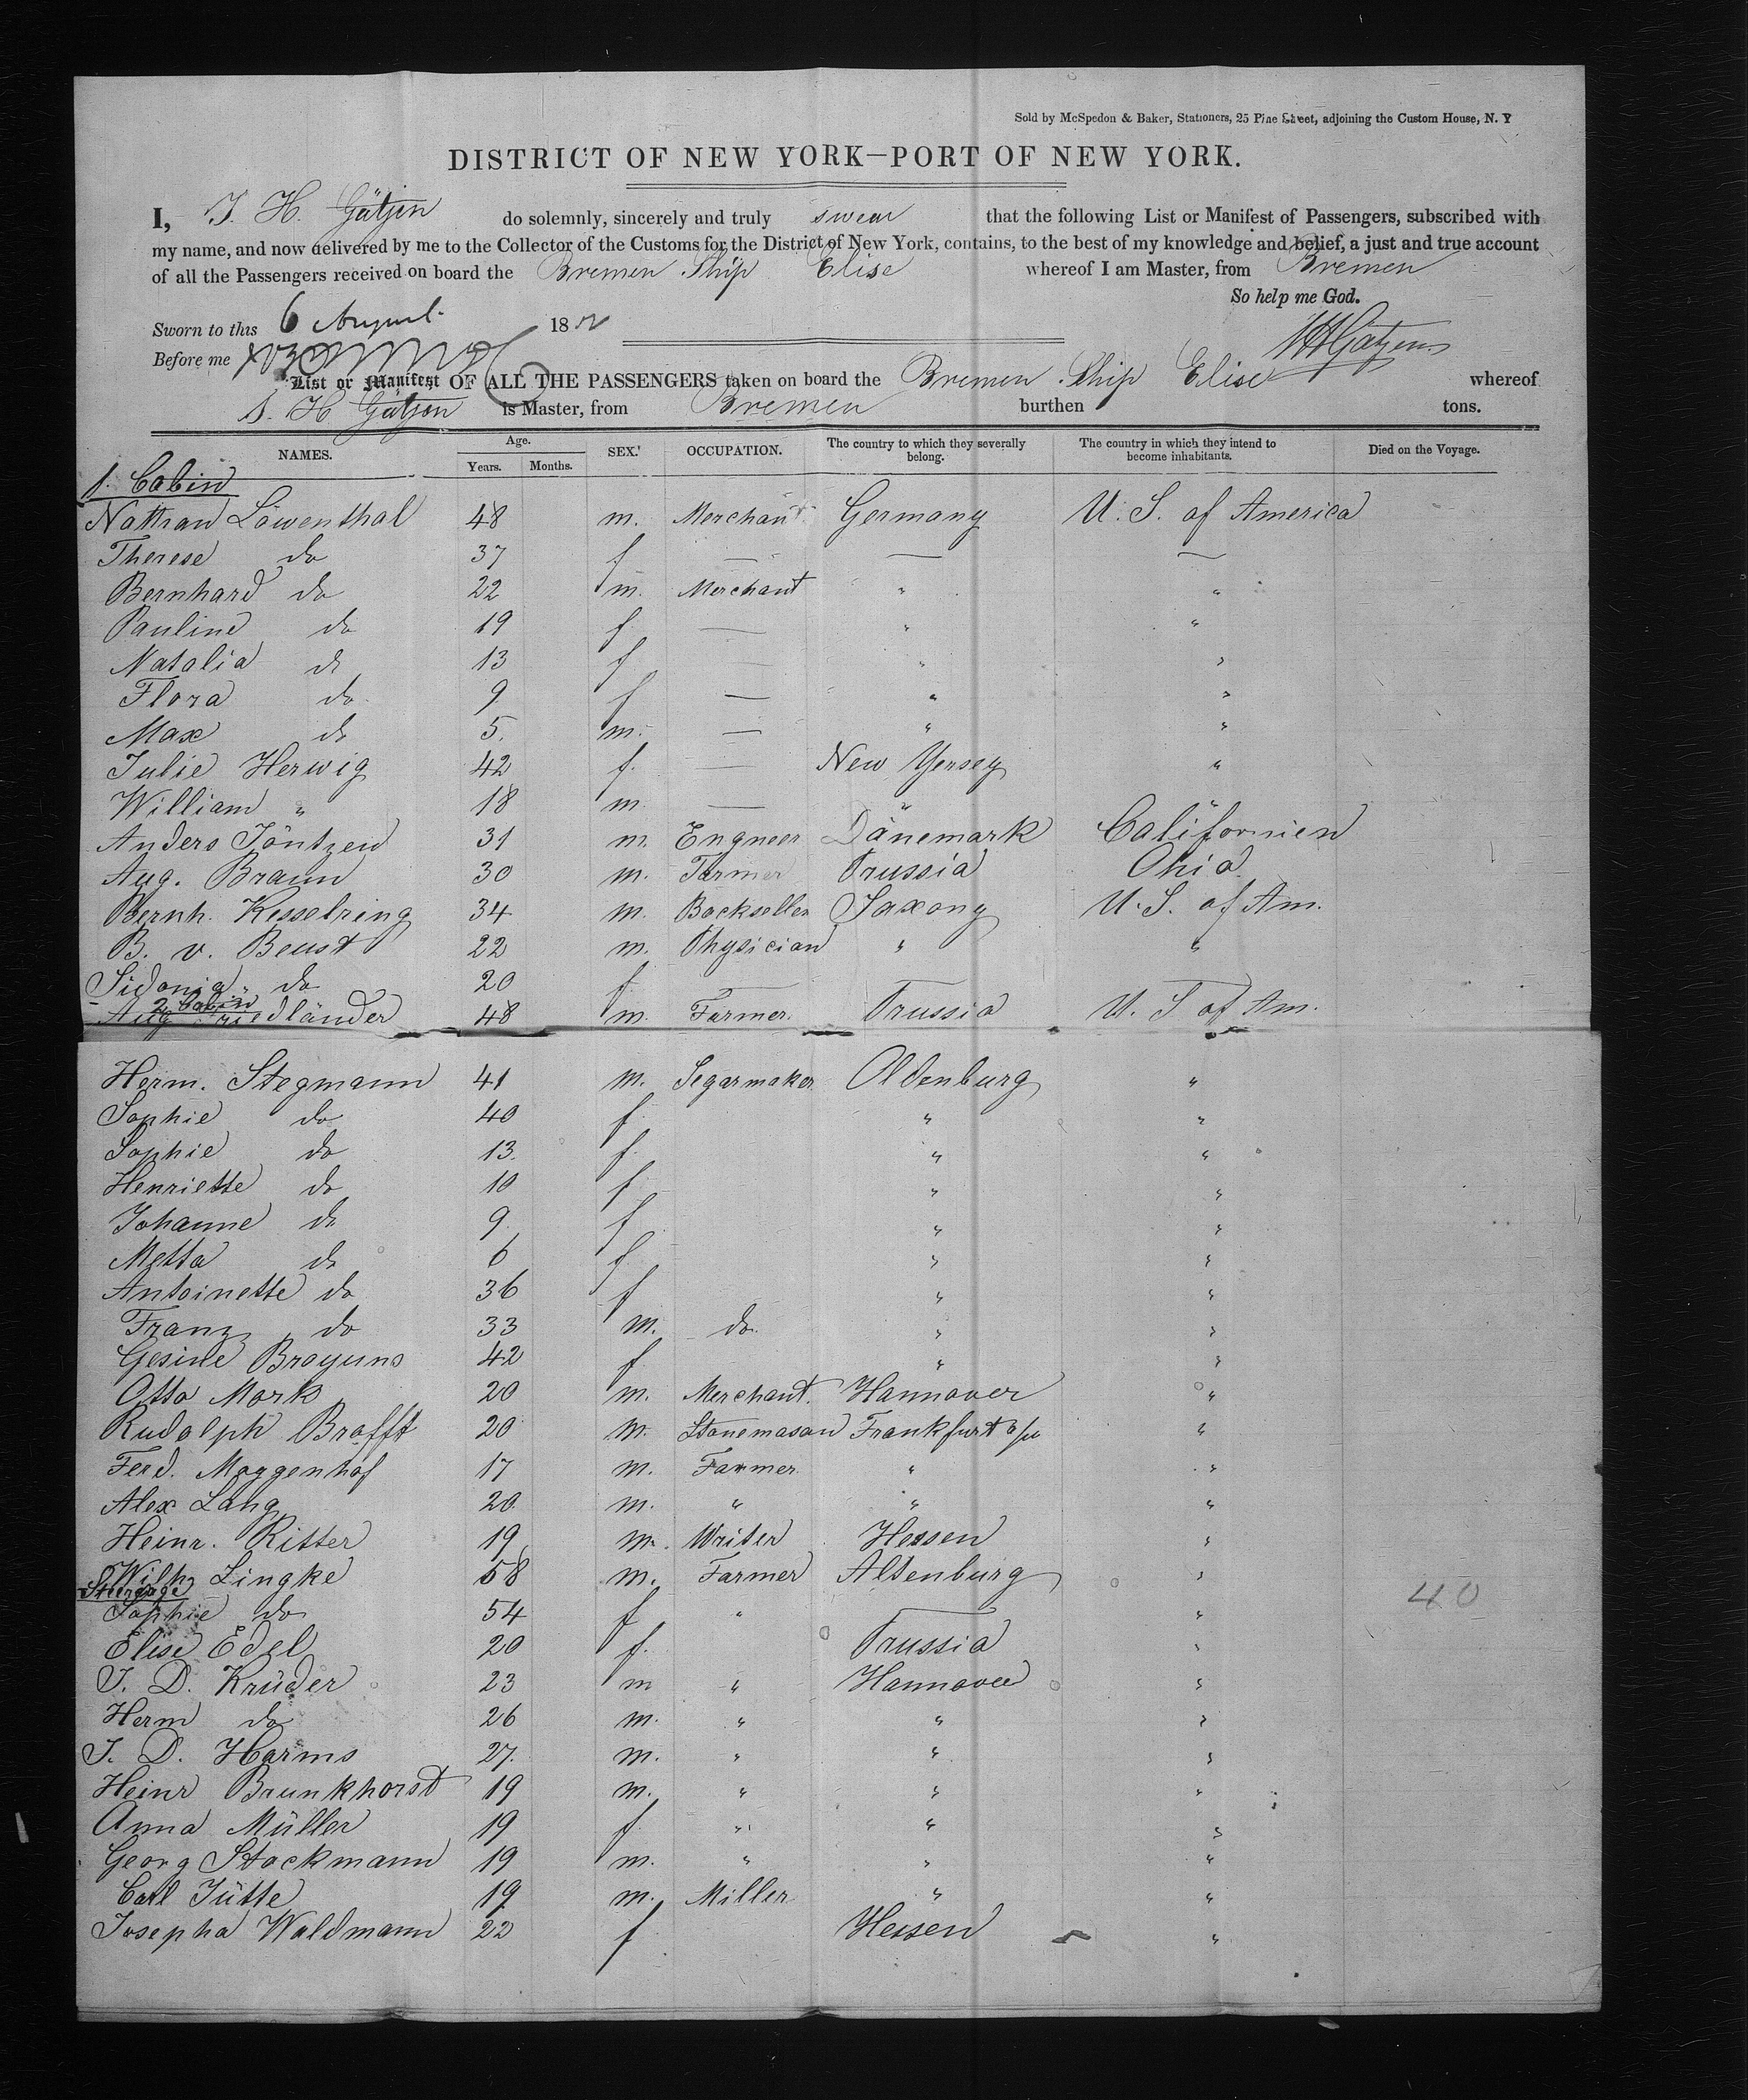 Sold by McSpedon & Baker, Stationers, 25 Pine Street, adjoining the Custom House, N. Y
DISTRICT OF NEW YORK—PORT OF NEW YORK.
I, J. H. Gätjen do solemnly, sincerely and truly swear that the following List or Manifest of Passengers, subscribed with
my name, and now delivered by me to the Collector of the Customs for the District of New York, contains, to the best of my knowledge and belief, a just and true account
of all the Passengers received on board the Bremen Ship Elise whereof I am Master, from Bremen
So help me God.
Sworn to this 6 August 18
Before me
List or Manifest OF ALL THE PASSENGERS taken on board the Bremen Ship Elise whereof
J. H Gätjen is Master, from Bremen burthen tons.
NAMES. Age. Years. Months. SEX. OCCUPATION. The country to which they severally belong. The country in which they intend to become inhabitants. Died on the Voyage.
1. Cabin
Nathan Löwenthal 48 m. Merchant Germany U. S. of America
Therese do 37 f. — — —
Bernhard do 22 m. Merchant " "
Pauline do 19 f — " "
Natalia do 13 f — " "
Flora do 9 f — " "
Max do 5. m. — " "
Julie Herwig 42 f. — New Yersey "
William " 18 m. — "
Anders Jöntzen 31 m. Engneer Dänemark Californien
Aug. Braun 30 m. Farmer Prussia Ohio
Bernh. Kesselring 34 m. Bookseller Saxony U. S. of Am.
B. v. Beust 22 m. Physician " "
Sidonia " do 20 f — — —
2 Cabin
Aug Friedländer 48 m. Farmer. Prussia U. S of Am.
Herm. Stegmann 41 m. Segarmaker Oldenburg "
Sophie do 40 f " "
Sophie do 13. f. " "
Henriette do 10 f " "
Johanne do 9. f " "
Metta do 6 f " "
Antoinette do 36 f " "
Franz do 33 m. do " "
Gesine Brayuns 42 f " "
Otto Mork 20 m. Merchant. Hannover "
Rudolph Brofft 20 m. Stonemason Frankfurt "
Ferd. Maggenhof 17 m. Farmer " "
Alex Lang 20 m. " " "
Heinr. Ritter 19 m. Writer Hessen "
Wilh. Lingke 58 m. Farmer Altenburg "
Steerage
Sophie do 54 f " — " 40
Elise Edel 20 f. Prussia "
J. D. Krüder 23 m " Hannover "
Herm do 26 m. " " "
J. D. Harms 27. m. " " "
Heinr Brunkhorst 19 m. " " "
Anna Müller 19 f " " "
Georg Stockmann 19 m. " " "
Carl Jütte 19 m. Miller " "
Josepha Waldmann 22 f Hessen "